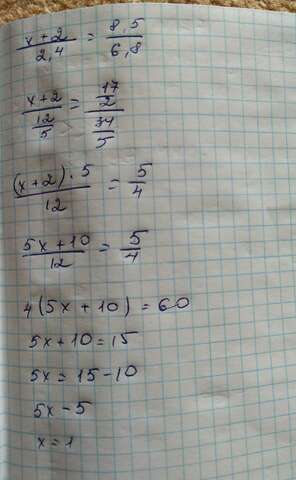 x+2/2,4 = 8,5/6,8
x+2/(12/5) = (17/2)/(34/5)
(x+2)·5/12 = 5/4
5x+10/12 = 5/4
4(5x+10)=60
5x+10=15
5x=15-10
5x-5
x=1